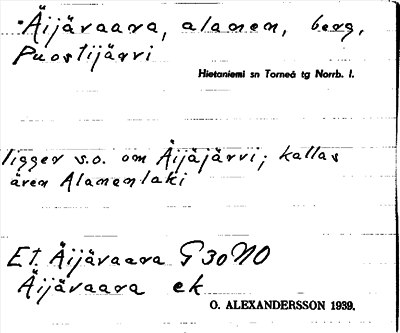 Äijävaara, alamen, berg,
Puostijärvi
Hietaniemi sn Torneå tg Norrb. l.
ligger s.o. om Äijäjärvi; kallas
även Alamenlaki
Et. Äijävaara G 30 NO
Äijävaara ek
O. ALEXANDERSSON 1939.